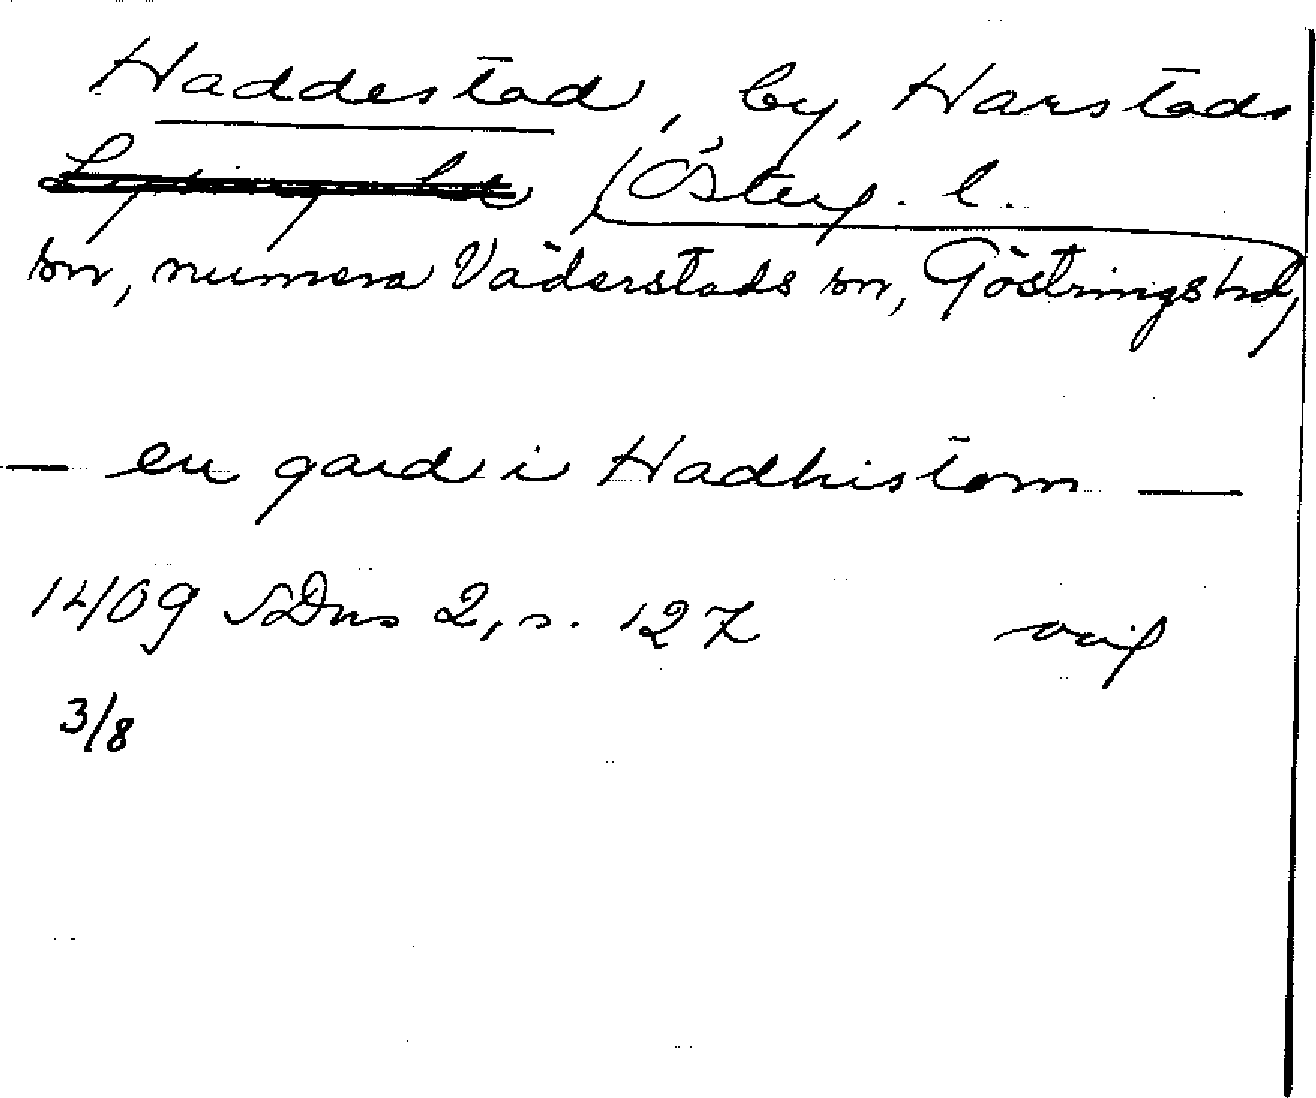 Haddestad, by, Harstads
Lysings hd Österg. l.
sn, numera Väderstads sn, Göstrings hd,
— en gard i Hadhistom —
1409 SDns 2, s. 127 orig
3/8